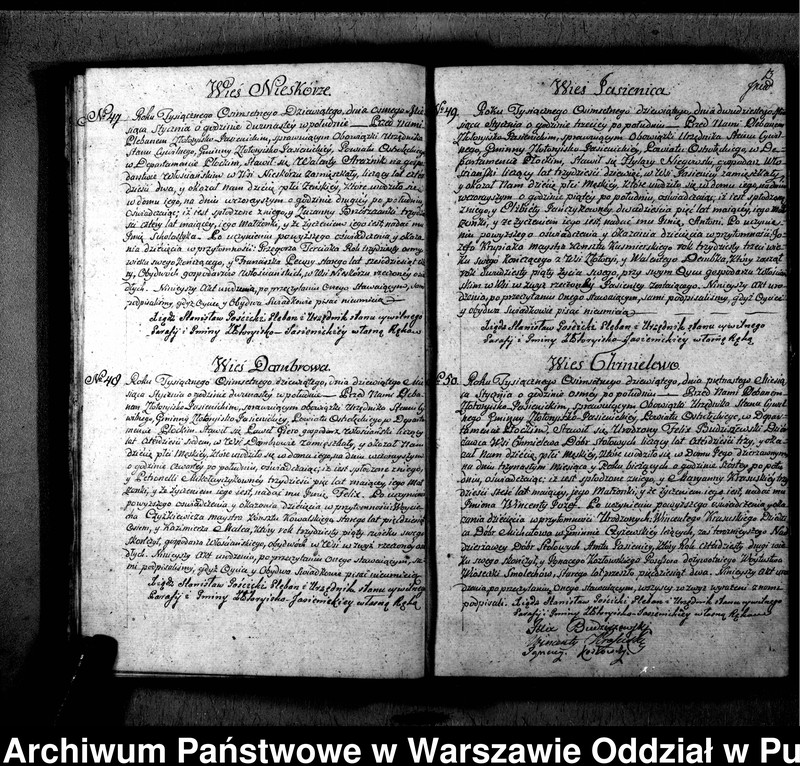 Wieś Nieskórze.
No 47 Roku Tysiącznego Osimsetnego Dziewiątego, dnia osmego Mie-
siąca Stycznia o godzinie dwunastey w południe — Przed Nami
Plebanem Złotoryisko Jasienickim, sprawuiącym Obowiązki Urzędnika
Stanu Cywilnego, Gminny Złotoryisko Jasienickiey, Powiatu Ostrołęckiego
w Departamencie Płockim, Stawił się Walenty Strożnik na gospo-
darstwie Włościańskim w Wsi Nieskórzu Zamięszkały, liczący lat czter-
dzieści dwa, y okazał nam dziecię płci Żeńskiey, które urodziło się
w domu iego, na dniu wczorayszym o godzinie drugiey po południu,
oświadczaiąc, iż iest spłodzone z niego, y Zuzanny
ści cztery lat maiącey, iego Małżonki, y że życzeniem iego iest nadać mu
Imię Scholastyka. Po uczynieniu powyższego oświadczenia y okaza-
nia dziecięcia w przytomności Grzegorza
wieku swego kończącego, y Franciszka starego lat
cy, Obydwuch gospodarzów Włościańskich, w Wsi Nieskórzu rzeczoney osia-
dłych. Ninieyszy Akt urodzenia, po przeczytaniu Onego Stawaiącym, sami
podpisaliśmy, gdyż Oyciec y Obydwa Świadkowie pisać nieumieią —
Xiądz Stanisław Pościcki Pleban i Urzędnik stanu cywilnego
Parafij i Gminy Złotoryisko-Jasienickiey własną Ręką
Wieś Dombrowa.
No 48 Roku Tysiącznego Osimsetnego, dziewiątego, dnia dziewiątego Mie-
siąca Stycznia o godzinie dwunastey w południe — Przed Nami Pleba-
nem Złotoryisko Jasienickim, sprawuiącym obowiązki Urzędnika Stanu Cy-
wilnego, Gminny Złotoryisko Jasienickiey, Powiatu Ostrołęckiego w Departa-
mencie Płockim Stawił się Paweł gospodarz Włościański liczący
lat czterdzieści siedem, w Wsi Dombrowie zamięszkały, y okazał Nam
dziecię płci Męskiey, które urodziło się w domu iego, na dniu wczorayszym
o godzinie czwartey po południu, oświadczaiąc, iż iest spłodzone z niego,
y Petronelli trzydzieści pięć lat maiącey, iego Mał-
żonki, y że życzeniem iego iest, nadać mu Imię, Felix. Po uczynieniu
powyższego oświadczenia y okazania dziecięcia w przytomności Woycie-
cha maystra Kunsztu Kowalskiego Starego lat pięćdziesiąt
Osiem, y Kazimierza który rok trzydziesty piąty wieku swego
skończył, gospodarza Włościańskiego, obydwuch w Wsi w zwyż rzeczoney osia-
dłych. Ninieyszy Akt urodzenia, po przeczytaniu Onego Stawaiącym, sa-
mi podpisaliśmy, gdyż Oyciec y Obydwa Świadkowie pisać nieumieią
Xiądz Stanisław Pościcki Pleban i Urzędnik stanu cywilnego
Parafij i Gminy Złotoryisko-Jasienickiey własną Ręką
Wieś Jasienica
No 49. Roku Tysiącznego Osimsetnego dziewiątego, dnia dwudziestego Mie-
siąca Stycznia o godzinie trzeciey po południu. Przed Nami Plebanem
Złotoryisko Jasienickim, sprawuiącym Obowiązki Urzędnika Stanu Cywil-
nego, Gminny Złotoryisko Jasienickiey, Powiatu Ostrołęckiego, w De-
partamencie Płockim, Stawił się Hylary gospodarz Wło-
ściański liczący lat trzydzieści dziewięć, w Wsi Jasienicy zamięszkały,
y okazał Nam dziecię płci Męskiey, które urodziło się w domu iego, na dniu
wczorayszym o godzinie piątey po południu, oświadczaiąc, iż iest spłodzone
z niego, y Elżbiety dwadzieścia pięć lat maiącey, iego Mał-
żonki, y że życzeniem iego iest, nadać mu Imię, Po uczynie-
niu powyższego oświadczenia, y okazania dziecięcia w przytomności Jó-
zefa maystra Kunsztu Kuśnierskiego rok trzydziesty trzeci wie-
ku swego kończącego z Wsi y Walentego który zaczął
rok dwudziesty piąty życia swego, przy swym Oycu gospodarzu Włościań-
skim w Wsi w zwyż rzeczoney Jasienicy zostaiącego. Ninieyszy Akt uro-
dzenia, po przeczytaniu Onego Stawaiącym, Sami podpisaliśmy, gdyż Oyciec
y Obydwa Świadkowie pisać nieumieią —
Xiądz Stanisław Pościcki Pleban i Urzędnik stanu cywilnego
Parafij i Gminy Złotoryisko-Jasienickiey własną Ręką
Wieś Chmielewo
No 50. Roku Tysiącznego Osimsetnego dziewiątego, dnia piętnastego Miesią-
ca Stycznia o godzinie osmey po południu — Przed Nami Plebanem
Złotoryisko Jasienickim, sprawuiącym Obowiązki Urzędnika Stanu Cywil-
nego Gminny Złotoryisko Jasienickiey, Powiatu Ostrołęckiego, w Depar-
tamencie Płockim, Stawił się Urodzony Felix Budziszewski Dzier-
żawca Wsi Chmielewa Dóbr Stołowych liczący lat czterdzieści trzy, y oka-
zał Nam dziecię, płci Męskiey, które urodziło się w Domu Jego dzierżawnym
na dniu trzynastym Miesiąca y Roku bieżących o godzinie szóstey po połu-
dniu, oświadczaiąc, iż iest spłodzone z niego, y Maryanny Krasuskiey trzy-
dzieści sześć lat maiącey, iego Małżonki, y że życzeniem iego iest, nadać mu
Imiona Wincenty Józef. Po uczynieniu powyższego oświadczenia y oka-
zania dziecięcia w przytomności Urodzonych, Wincentego Krasuskiego Dziedzi-
ca Dóbr Michałowa w Gminnie Czyżewskiey leżących, zaś teraznieyszego Nad-
dzierżawcy Dóbr Stołowych Amtu Jasienicy, który Rok czterdziesty drugi wie-
ku swego skończył, y Ignacego Kozłowskiego
Włostki Smolechów, Starego lat przeszło pięćdziesiąt dwa. Ninieyszy Akt uro-
dzenia po przeczytaniu Onego Stawaiącym, wszyscy w zwyż wyrażeni z nami
podpisali. Xiądz Stanisław Pościcki Pleban i Urzędnik stanu cywilnego
Parafij i Gminy Złotoryisko-Jasienickiey własną Ręką
Felix Budziszewski
Wincenty Krasuski
Ignacy Kozłowski
Archiwum Państwowe w Warszawie Oddział w Pu